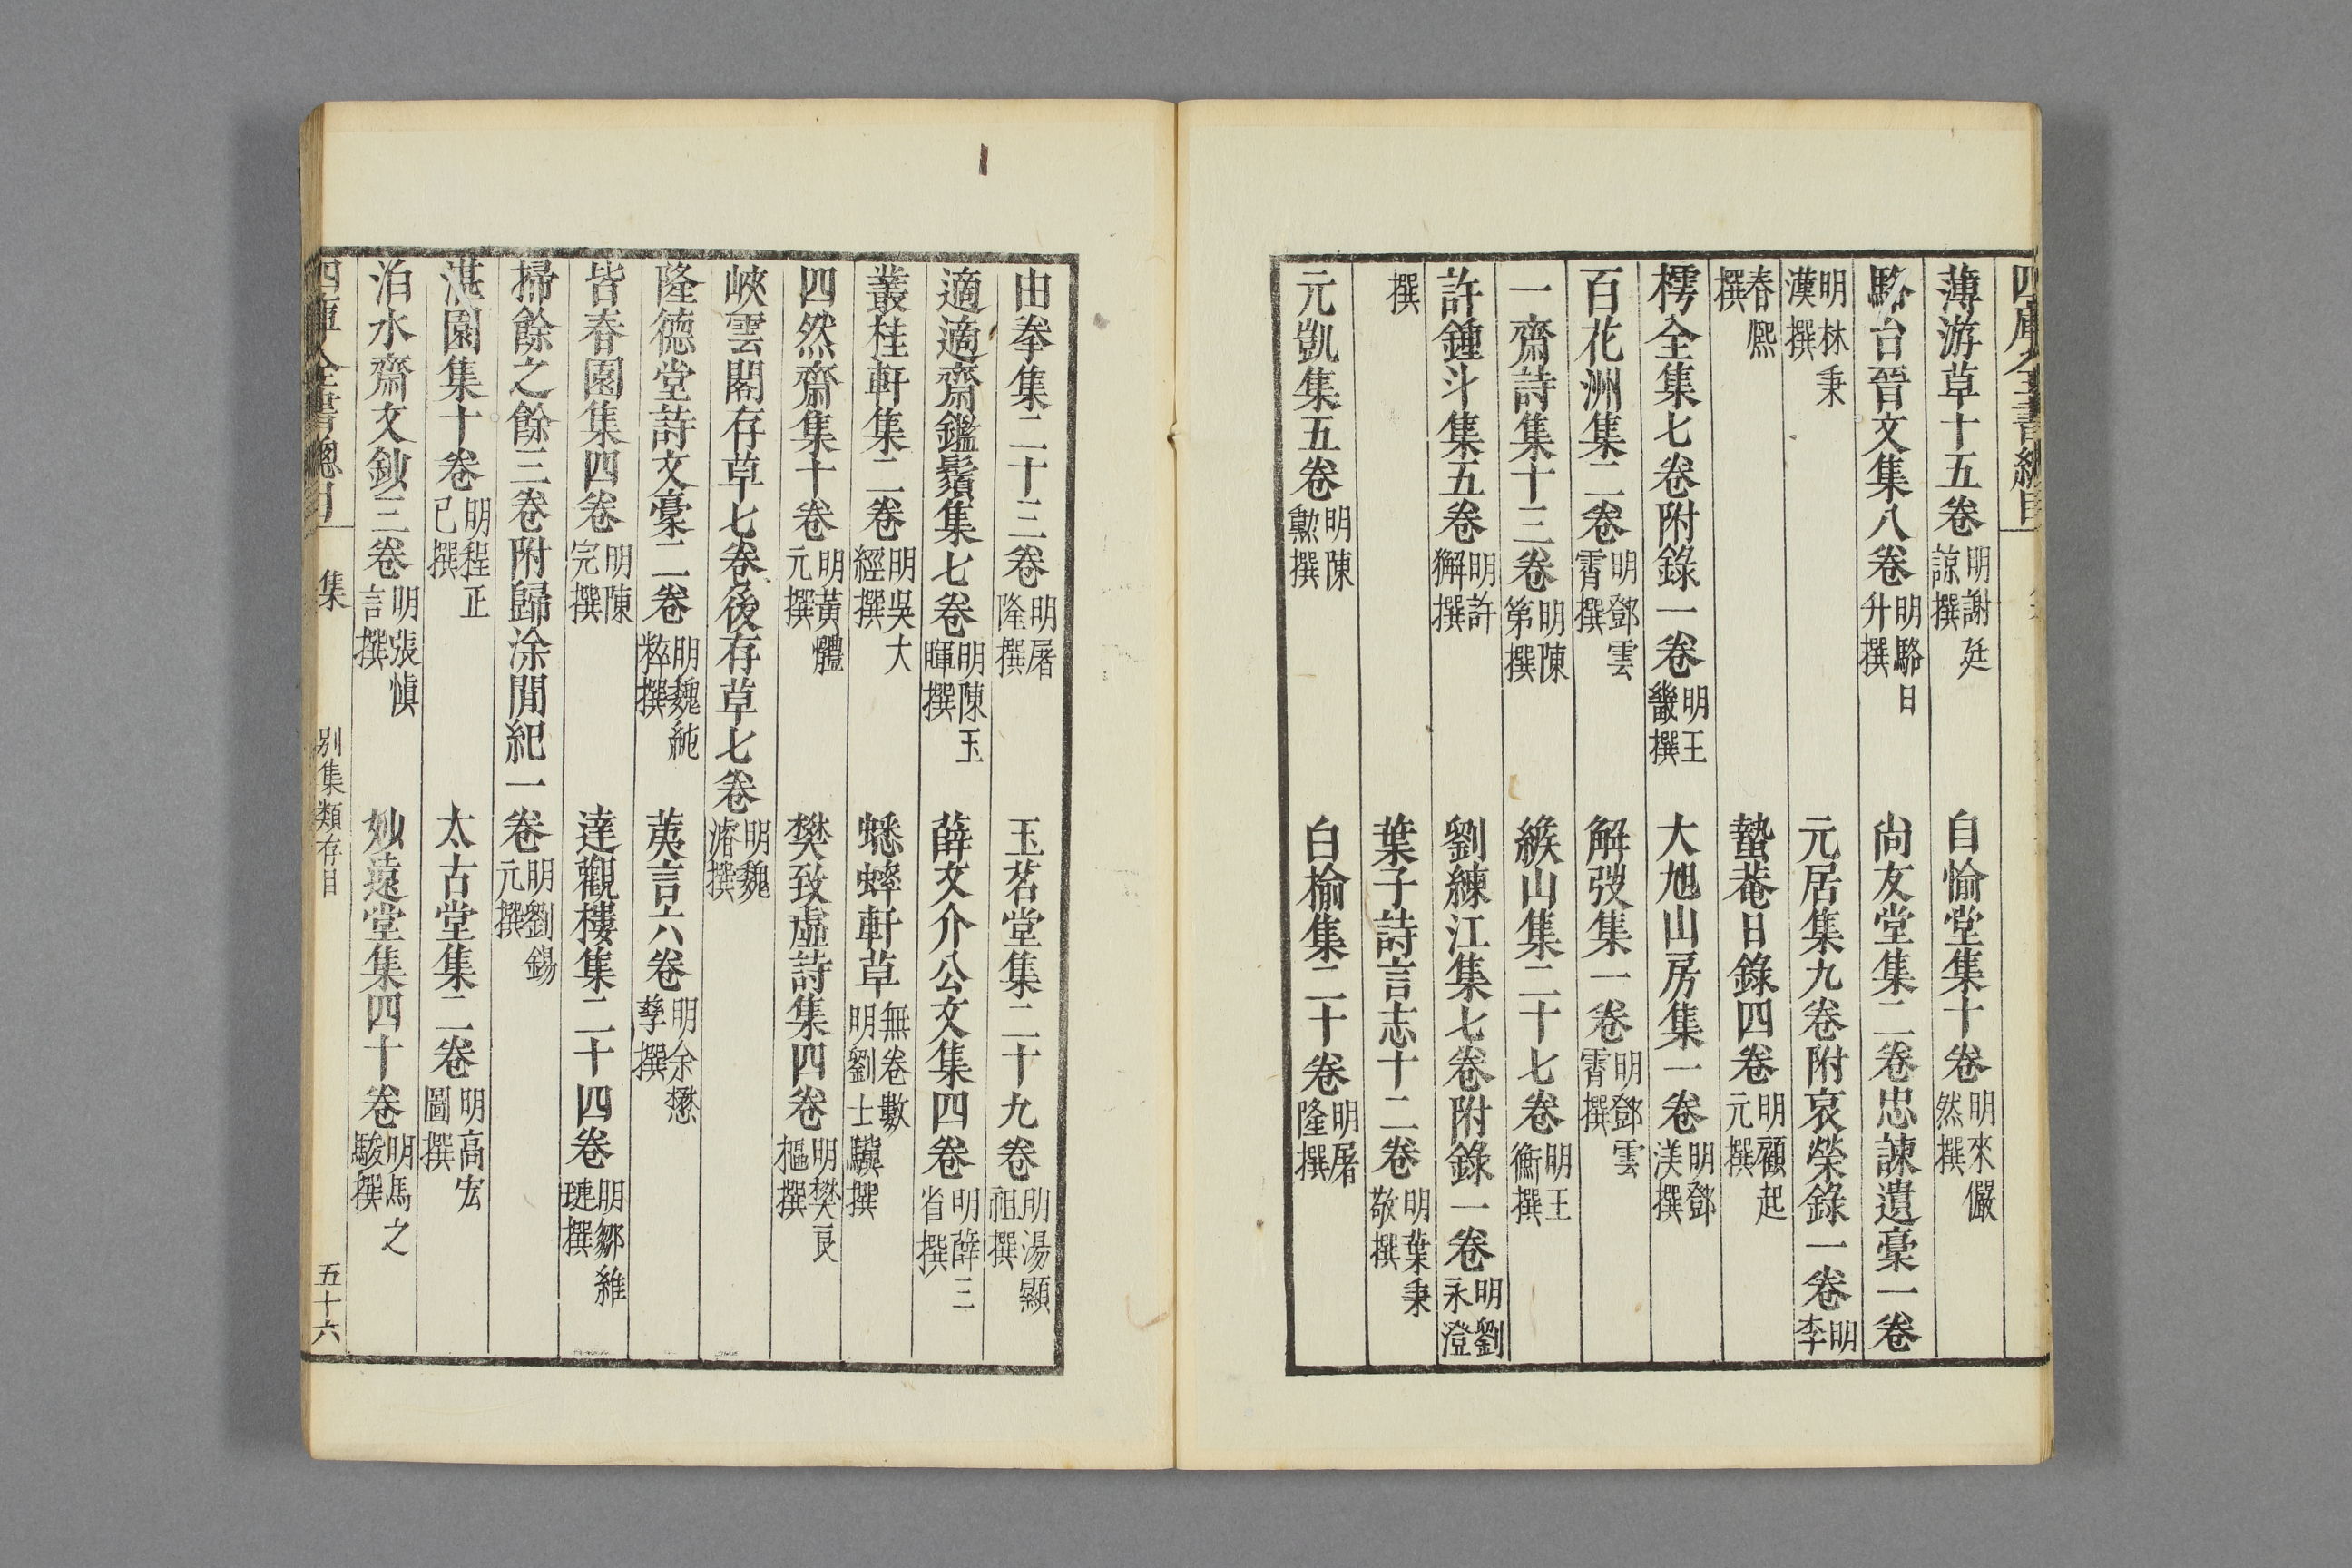 四庫全書總目
薄游草十五卷 明謝廷諒撰 自愉堂集十卷 明來儼然撰
駱台晉文集八卷 明駱日升撰 尚友堂集二卷忠諫遺稾一卷
明林秉漢撰 元居集九卷附哀榮錄一卷 明李
春熙撰 蟄菴日錄四卷 明顧起元撰
樗全集七卷附錄一卷 明王畿撰 大旭山房集一卷 明鄧渼撰
百花洲集二卷 明鄧雲霄撰 解弢集一卷 明鄧雲霄撰
一齋詩集十三卷 明陳第撰 緱山集二十七卷 明王衡撰
許鍾斗集五卷 明許獬撰 劉練江集七卷附錄一卷 明劉永澄
撰 葉子詩言志十二卷 明葉秉敬撰
元凱集五卷 明陳勳撰 白榆集二十卷 明屠隆撰
由拳集二十三卷 明屠隆撰 玉茗堂集二十九卷 明湯顯祖撰
適適齋鑑鬚集七卷 明陳玉暉撰 薛文介公文集四卷 明薛三省撰
叢桂軒集二卷 明吳大經撰 蟋蟀軒草 無卷數明劉士驥撰
四然齋集十卷 明黃體元撰 樊致虛詩集四卷 明樊良樞撰
峽雲閣存草七卷後存草七卷 明魏濬撰
隆德堂詩文稾二卷 明魏純粹撰 荑言六卷 明余懋孳撰
皆春園集四卷 明陳完撰 達觀樓集二十四卷 明鄒維璉撰
掃餘之餘三卷附歸涂閒紀一卷 明劉錫元撰
湛園集十卷 明程正己撰 太古堂集二卷 明高宏圖撰
泊水齋文鈔三卷 明張慎言撰 妙遠堂集四十卷 明馬之駿撰
四庫全書總目 集 別集類存目 五十六